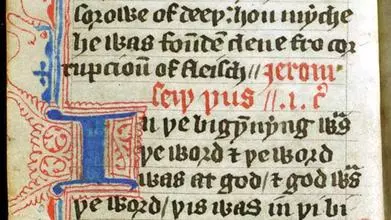 sorowe of deeþ: hou myche
he was foūden clene fro cor
rupcioū of fleisch // Jerom
seiþ þus // .1. c̄
In þe bigȳnyng wᵃs
þe word ⁊ þe word
was at god / ⁊ god wᵃs
þe word / þis was in þe bi